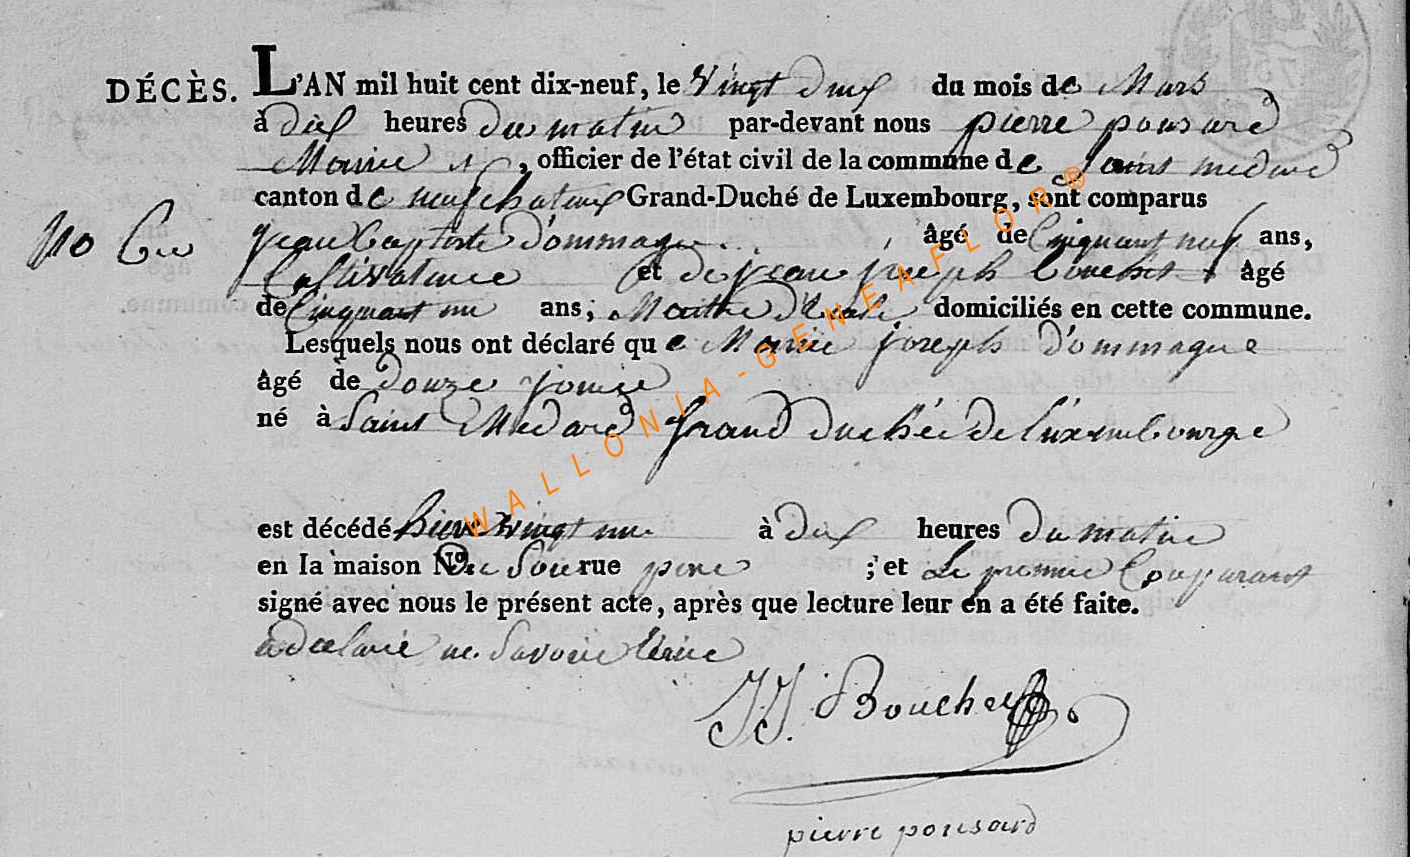 DÉCÈS. L'AN mil huit cent dix-neuf, le Vingt deux du mois de Mars
à dix heures du matin par-devant nous pierre ponsard
Maire, officier de l'état civil de la commune de Saint medard
canton de neufchateau Grand-Duché de Luxembourg, sont comparus
Jean Baptiste D'ommague âgé de Cinquant neuf ans,
Cultivateur et de jean joseph Bouchet âgé
de Cinquant un ans, Maitre D'Ecole domiciliés en cette commune.
Lesquels nous ont déclaré que Marie joseph D'ommague
âgé de douze jours
né à Saint Medard grand duchée de Luxembourge
est décédé hier vingt un à dix heures du matin
en la maison N.° De Son rue pere ; et Le premier Comparant
signé avec nous le présent acte, après que lecture leur en a été faite.
a declaré ne Savoir Ecrire
JJ. Bouchet
pierre ponsard
WALLONIA-GENEAFLOR®